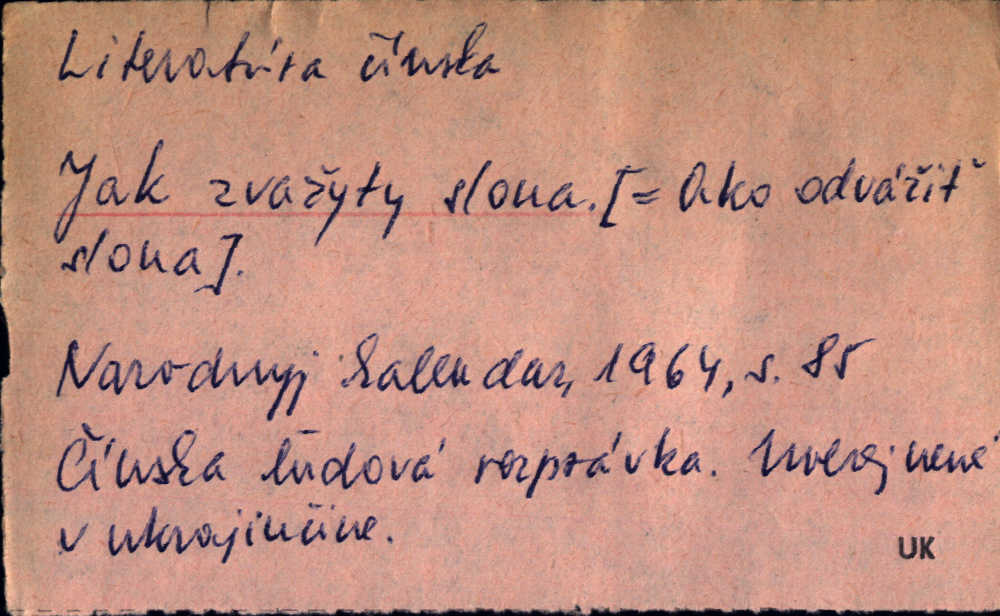 Literatúra čínska
Jak zvažyty slona. [= Ako odvážiť
slona].
Narodnyj kalendar, 1964, s. 85
Čínska ľudová rozprávka. Uverejnené
v ukrajinčine.
UK